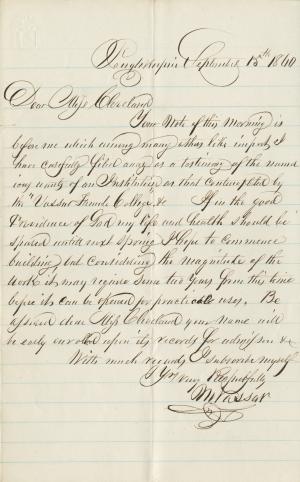 Poughkeepsie September 15th 1860
Dear Miss Cleveland
Your Note of this Morning is
before me which among many others like import I
have carefully filed away as a testimony of the
wants of an Institution as that contemplated by
the "Vassar Female College, &c If in the good
Providence of God my life and health should be
spared until next spring I hope to commence
building but considering the magnitude of the
work it may require some two years from this time
before its can be opened for practicable uses. Be
assured dear Miss Cleveland your name will
be early enrolled upon its records for admission &c
With much regards I subscribe myself
Yrs very Respectfully
M Vassar